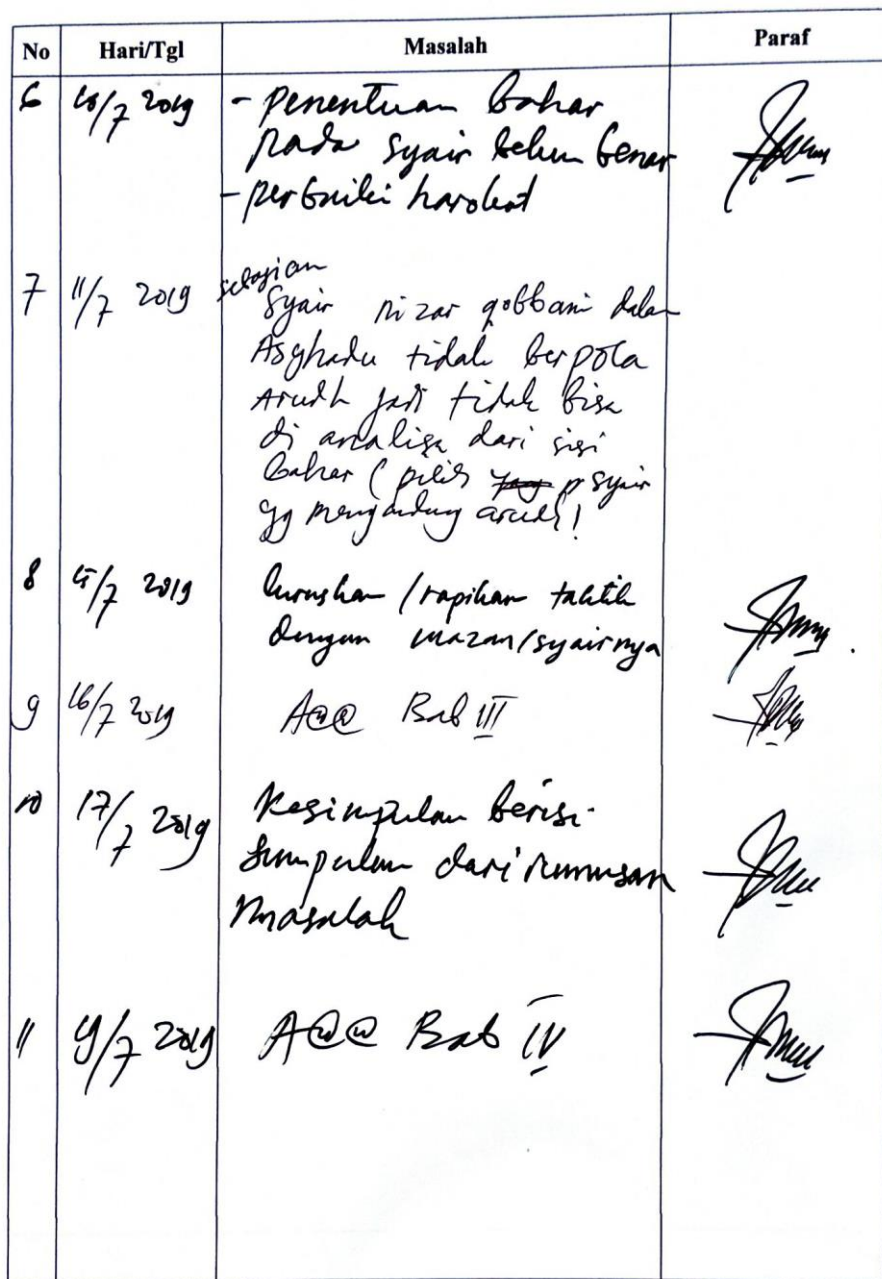 No Hari/Tgl Masalah Paraf
6 10/7 2019 - penentuan bahar
pada syair belum benar
- perbaiki harokat
7 11/7 2019 sebagian
Syair nizar qobbani dalam
Asyhadu tidak berpola
Arudh jadi tidak bisa
di analisa dari sisi
bahar (pilih yang syair
yg mengandung arudh!
8 15/7 2019 luruskan / rapikan taktik
dengan wazan/syairnya
9 16/7 2019 Acc Bab III
10 17/7 2019 Kesimpulan berisi
simpulan dari rumusan
masalah
11 19/7 2019 Acc Bab IV